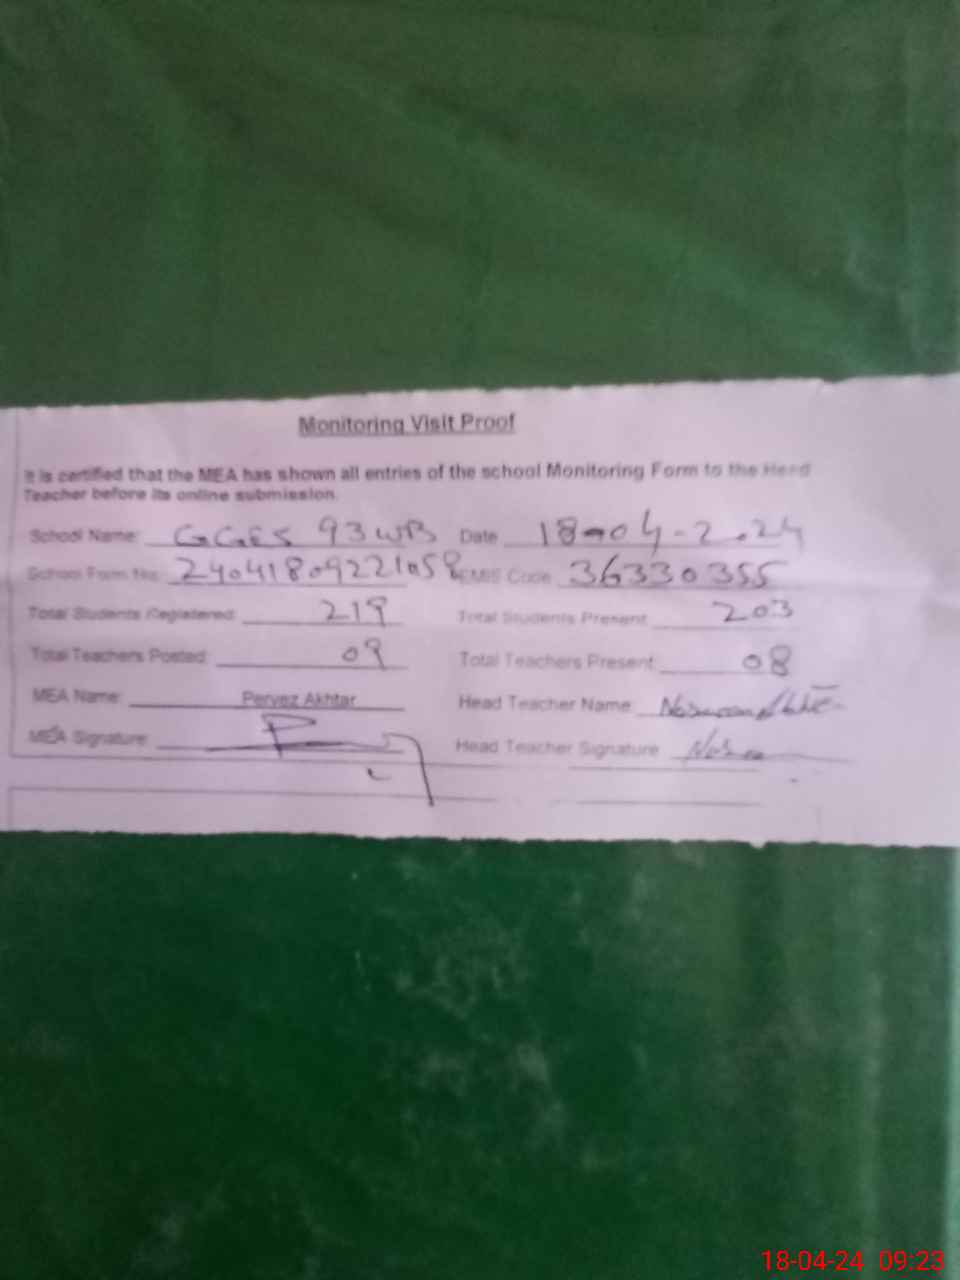 Monitoring Visit Proof
It is certified that the MEA has shown all entries of the school Monitoring Form to the Head
Teacher before its online submission.
School Name: GGES 93 WB Date 18-04-2024
School Form No: 24041809221058 EMIS Code 36330355
Total Students Registered: 219 Total Students Present: 203
Total Teachers Posted: 09 Total Teachers Present: 08
MEA Name: Pervez Akhtar Head Teacher Name:
MEA Signature: Head Teacher Signature
18-04-24 09:23